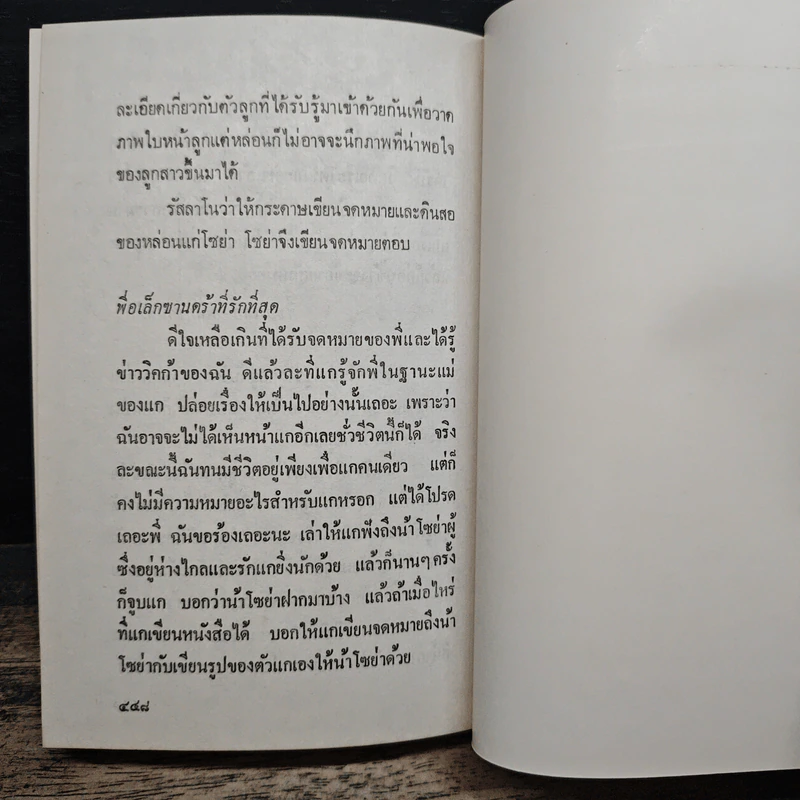 ละเอียดเกี่ยวกับตัวลูกที่ได้รับรู้มาเข้าด้วยกันเพื่อวาด
ภาพใบหน้าลูกแต่หล่อนก็ไม่อาจจะนึกภาพที่น่าพอใจ
ของลูกสาวขึ้นมาได้
รัสลาโนว่าให้กระดาษเขียนจดหมายและดินสอ
ของหล่อนแก่โซย่า โซย่าจึงเขียนจดหมายตอบ
พี่อเล็กซานดร้าที่รักที่สุด
ดีใจเหลือเกินที่ได้รับจดหมายของพี่และได้รู้
ข่าววิคก้าของฉัน ดีแล้วละที่แกรู้จักพี่ในฐานะแม่
ของแก ปล่อยเรื่องให้เป็นไปอย่างนั้นเถอะ เพราะว่า
ฉันอาจจะไม่ได้เห็นหน้าแกอีกเลยชั่วชีวิตนี้ก็ได้ จริง
ละขณะนี้ฉันทนมีชีวิตอยู่เพียงเพื่อแกคนเดียว แต่ก็
คงไม่มีความหมายอะไรสำหรับแกหรอก แต่ได้โปรด
เถอะพี่ ฉันขอร้องเถอะนะ เล่าให้แกฟังถึงน้าโซย่าผู้
ซึ่งอยู่ห่างไกลและรักแกยิ่งนักด้วย แล้วก็นานๆ ครั้ง
ก็จูบแก บอกว่าน้าโซย่าฝากมาบ้าง แล้วถ้าเมื่อไหร่
ที่แกเขียนหนังสือได้ บอกให้แกเขียนจดหมายถึงน้า
โซย่ากับเขียนรูปของตัวแกเองให้น้าโซย่าด้วย
๔๔๘